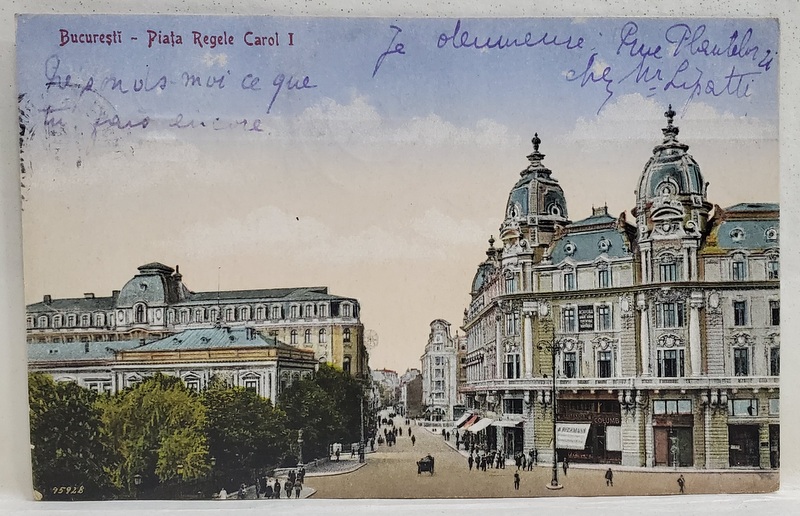 Bucureşti - Piaţa Regele Carol I
Je demeure: Rue Plantelor 21
chez Mr Lipatti
Responds-moi ce que
tu fais encore
95928